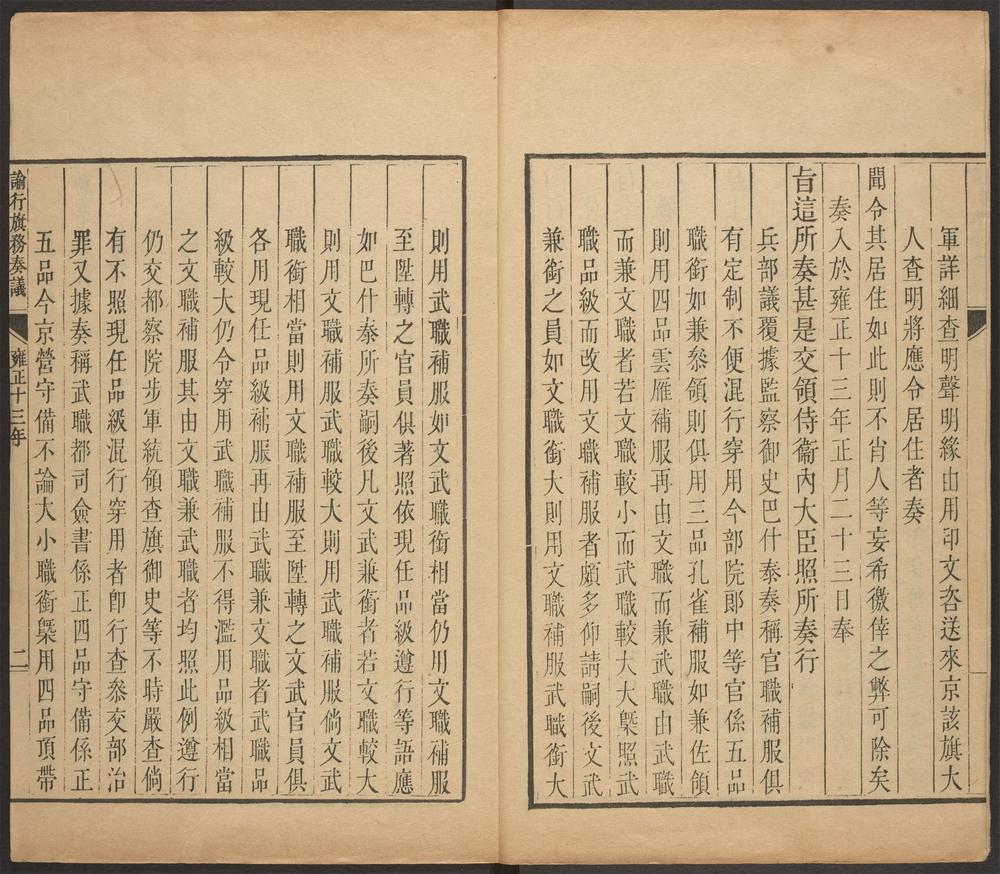 軍詳細查明聲明緣由用印文咨送來京該旗大
人查明將應令居住者奏
聞令其居住如此則不肖人等妄希徼倖之弊可除矣
奏入於雍正十三年正月二十三日奉
旨這所奏甚是交領侍衞內大臣照所奏行
兵部議覆據監察御史巴什泰奏稱官職補服俱
有定制不便混行穿用今部院郎中等官係五品
職銜如兼叅領則俱用三品孔雀補服如兼佐領
則用四品雲雁補服再由文職而兼武職由武職
而兼文職者若文職較小而武職較大大槩照武
職品級而改用文職補服者頗多仰請嗣後文武
兼銜之員如文職銜大則用文職補服武職銜大
則用武職補服如文武職銜相當仍用文職補服
至陞轉之官員俱著照依現任品級遵行等語應
如巴什泰所奏嗣後凡文武兼銜者若文職較大
則用文職補服武職較大則用武職補服倘文武
職銜相當則用文職補服至陞轉之文武官員俱
各用現任品級補服再由武職兼文職者武職品
級較大仍令穿用武職補服不得濫用品級相當
之文職補服其由文職兼武職者均照此例遵行
仍交都察院步軍統領查旗御史等不時嚴查倘
有不照現任品級混行穿用者卽行查叅交部治
罪又據奏稱武職都司僉書係正四品守備係正
五品今京營守備不論大小職銜槩用四品頂帶
諭行旗務奏議 雍正十三年 二